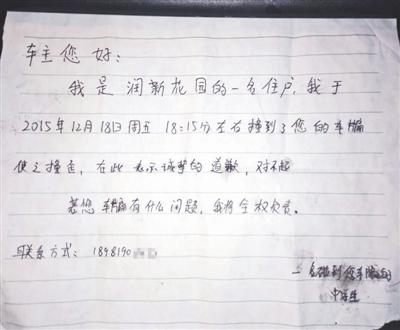 车主您好：
我是润新花园的一名住户，我于
2015年12月18日周五 18:15分左右撞到了您的车牌
使之撞歪，在此表示诚挚的道歉，对不起
若您车牌有什么问题，我将全权负责。
联系方式：1898190
一名碰到您车牌的
中学生